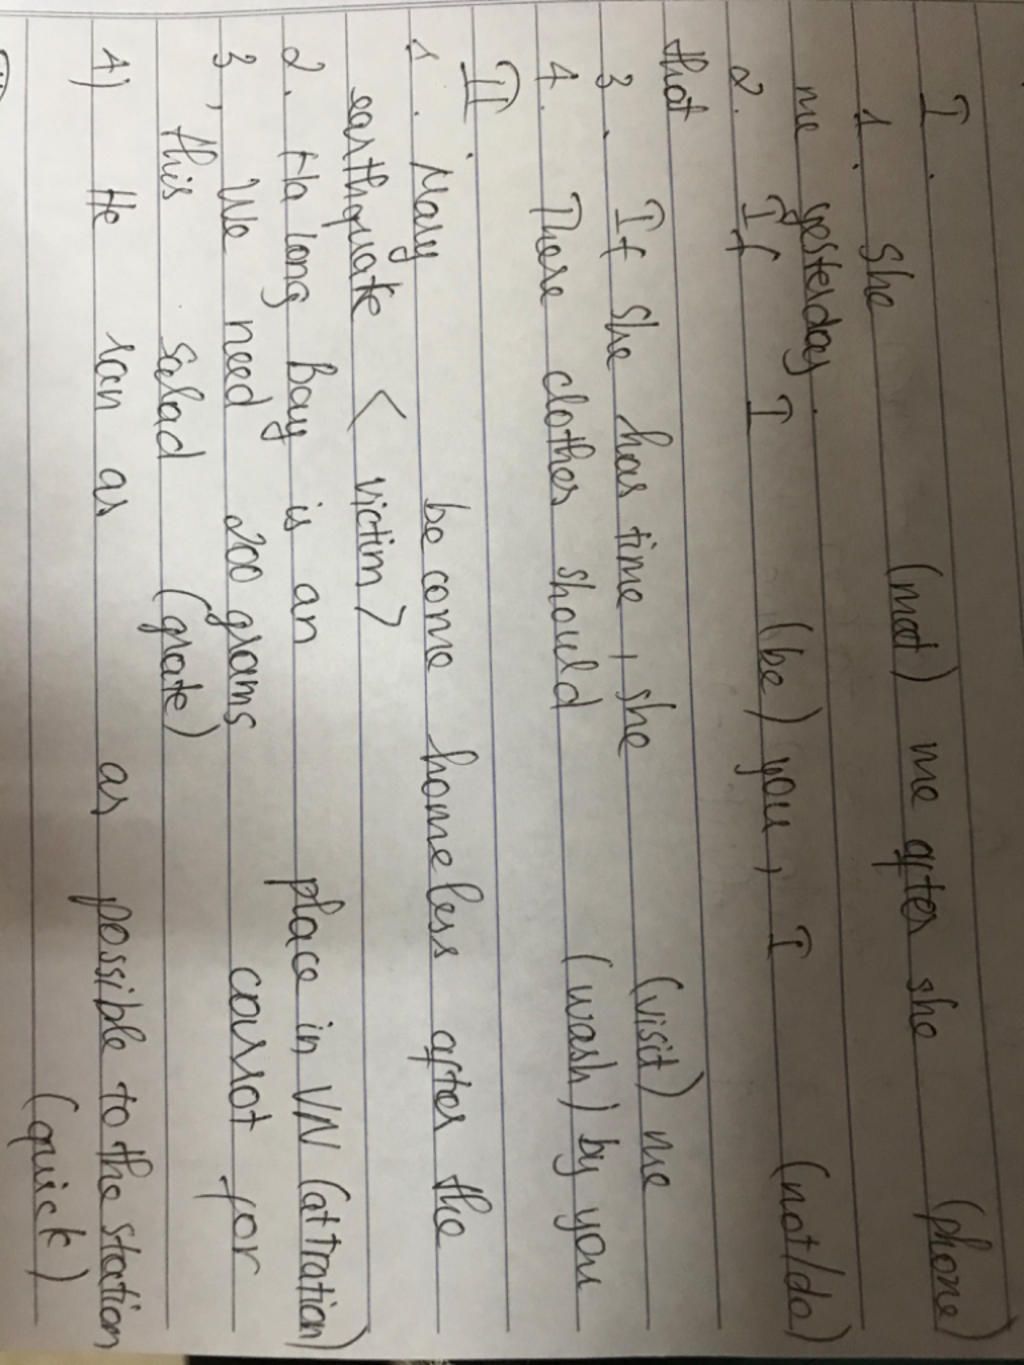 I.
1. She (met) me after she (phone)
me yesterday.
2. If I (be) you, I (not/do)
that
3. If she has time, she (visit) me
4. These clothes should (wash) by you
II.
1. Many become homeless after the
earthquake < victim>
2. Ha long Bay is an place in VN (attration)
3, We need 200 grams carrot for
this salad (grate)
4) He ran as as possible to the station
(quick)